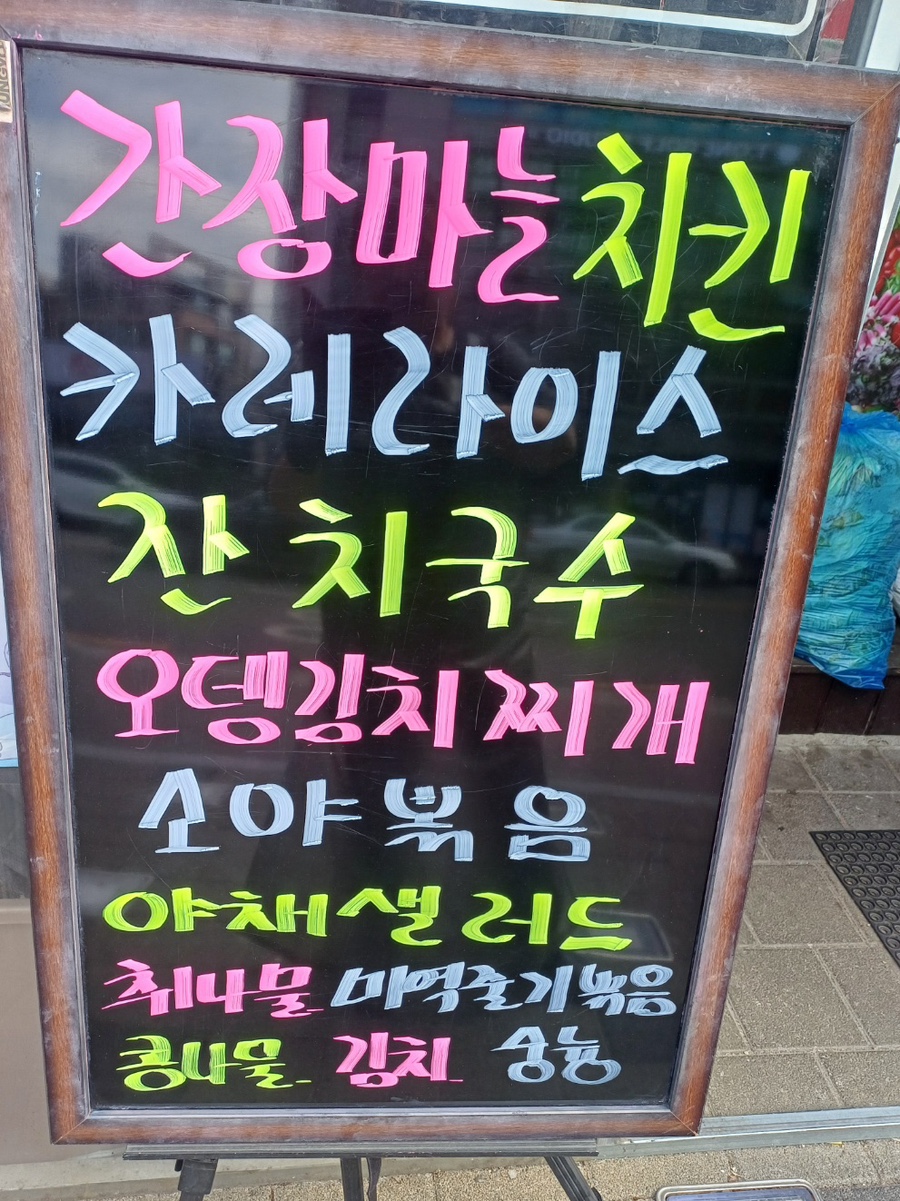 간장마늘치킨
카레라이스
잔치국수
오뎅김치찌개
소야볶음
야채샐러드
취나물 미역줄기볶음
콩나물 김치 숭늉